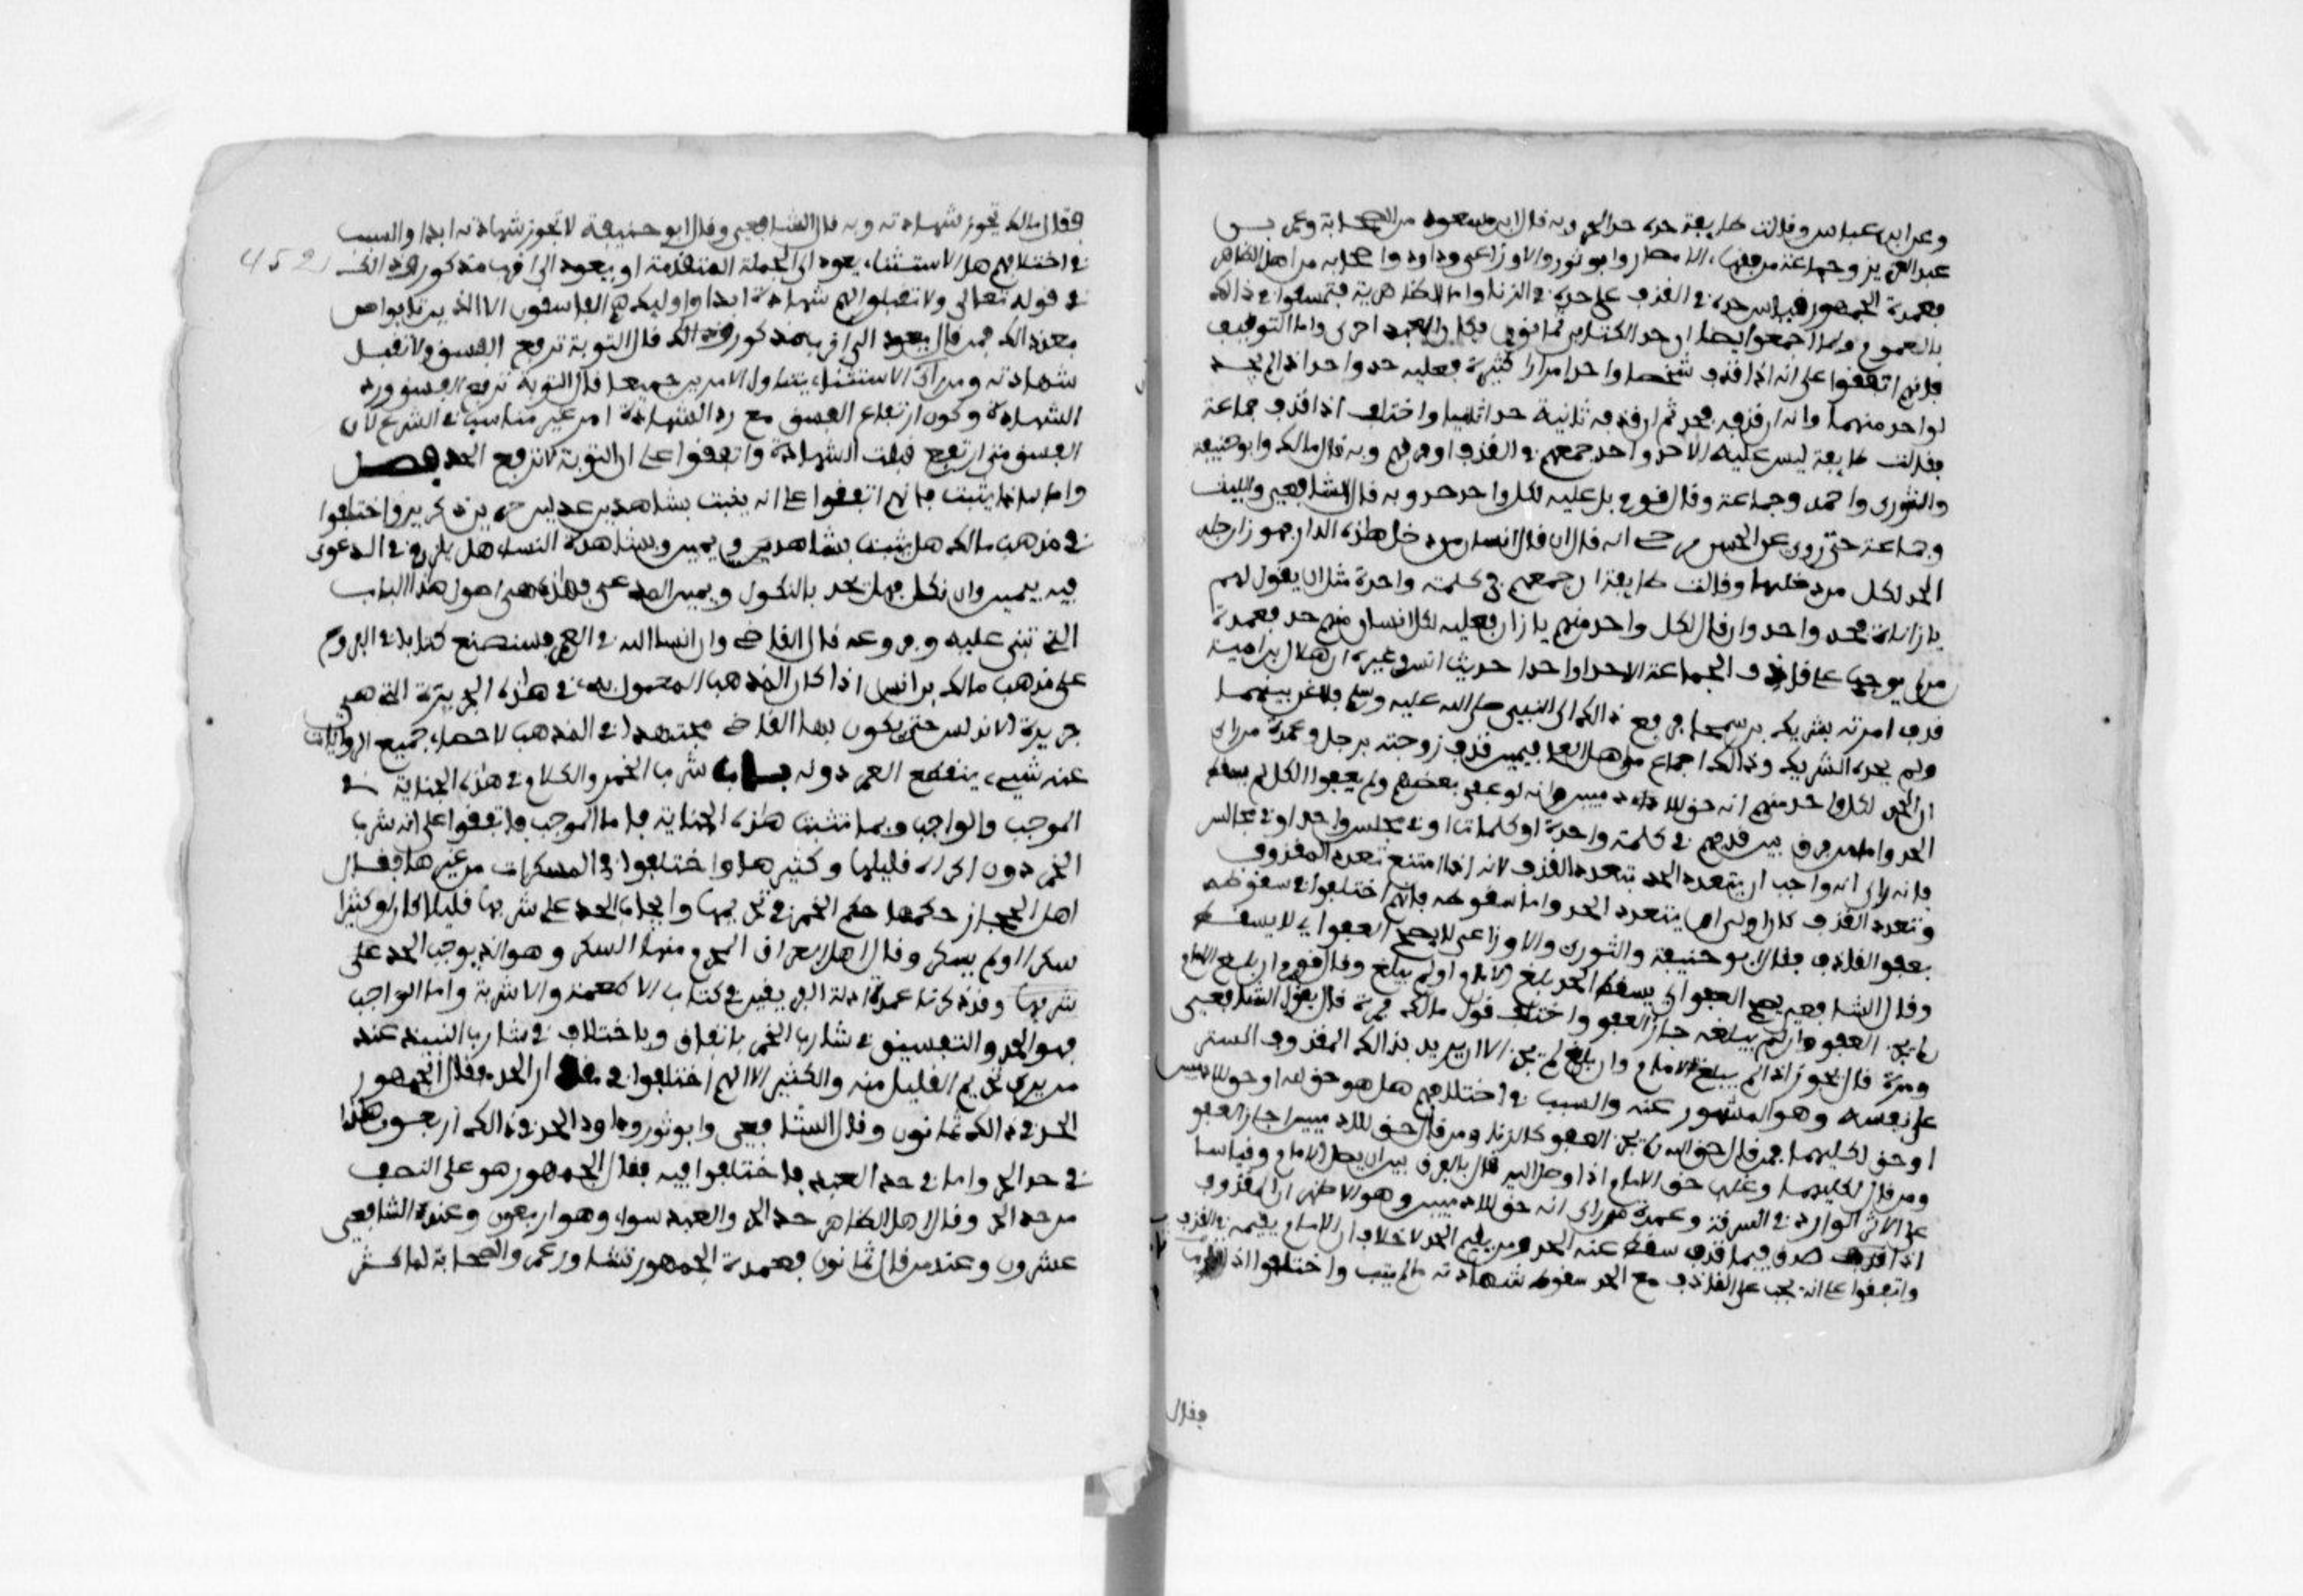 وعن ابن عباس وقالت طايفة حده حد الحر وبه قال ابن مسعود من الصحابة وعمر بن
عبد العزيز وجماعة من فقهاء الامصار وابو ثور والاوزاعي وداود واصحابه من اهل الظاهر
فعمدة الجمهور قياس حده في القذف على حده في الزنا واما الظاهرية فتمسكوا في ذالك
بالعموم ولما اجمعوا ايضا ان حد الكتابي ثمانون فكان العبد احرى واما التوقيف
فانهم اتفقوا على انه اذا قذف شخصا واحدا مرارا كثيرة فعليه حد واحد اذا لم يحد
لواحد منهما وانه ان قذفه فحد ثم ان قذفه ثانية حد اثانيا واختلف اذا قذف جماعة
فقالت طايفة ليس عليه الا حد واحد جمعهم في القذف او فرقهم وبه قال مالك وابو حنيفة
والثوري واحمد وجماعة وقال قوم بل عليه لكل واحد حد وبه قال الشافعي والليث
وجماعة حتى روي عن الحسن بن حي انه قال ان قال انسان من دخل هذه الدار فهو زان جلد
الحد لكل من دخلها وقالت طايفة ان جمعهم في كلمة واحدة مثل ان يقول لهم
يا زناة فحد واحد وان قال لكل واحد منهم يا زان فعليه لكل انسان منهم حد فعمدة
من لم يوجب على قاذف الجماعة الا حدا واحدا حديث انس وغيره ان هلال بن امية
قذف امرته بشريك بن سحما فرفع ذالك الى النبي صلى الله عليه وسلم فلاعن بينهما
ولم يحده لشريك وذالك اجماع من اهل العلم فيمن قذف زوجته برجل وعمدة من راى
ان الحد لكل واحد منهم انه حق للادميين وانه لو عفى بعضهم ولم يعفوا الكل لم يسقط
الحد واما من فرق بين قذفهم في كلمة واحدة او كلمات او في مجلس واحد او في مجالس
فانه راى انه واجب ان يتعدد الحد بتعدد القذف لانه اذا اجتمع تعدد المقذوف
وتعدد القذف كان اولى ان يتعدد الحد واما سقوطه فانهم اختلفوا في سقوطه
بعفو القاذف فقال ابو حنيفة والثوري والاوزاعي لا يصح العفو اي لا يسقط
وقال الشافعي يصح العفو اي يسقط الحد بلغ الامام او لم يبلغ وقال قوم ان بلغ الامام
لم يجز العفو وان لم يبلغه جاز العفو واختلف قول مالك فمرة قال بقول الشافعي
ومرة قال يجوز اذا لم يبلغ الامام وان بلغ لم يجز الا ان يريد بذالك المقذوف الستر
على نفسه وهو المشهور عنه والسبب في اختلافهم هل هو حق لله او حق للادميين
او حق لكليهما فمن قال حق لله لم يجز العفو كالزنا ومن قال حق للادميين اجاز العفو
ومن قال لكليهما وغلب حق الامام اذا وصل اليه قال بالفرق بين ان يصل الامام وقياسا
على الاثر الوارد في السرقة وعمدة من راى انه حق للادميين وهو الاظهر ان المقذوف
اذا صدقه فيما قذف سقط عنه الحد ومن يقيم الحد لا خلاف ان الامام يقيمه في القذف
واتفقوا على انه يجب على القاذف مع الحد سقوط شهادته ما لم يتب واختلفوا اذا
فقال
452
فقال مالك تجوز شهادته وبه قال الشافعي وقال ابو حنيفة لا تجوز شهادته ابدا والسبب
في اختلافهم هل الاستثناء يعود الى الجملة المتقدمة او يعود الى اقرب مذكور وذالك
في قوله تعالى ولا تقبلوا لهم شهادة ابدا واوليك هم الفاسقون الا الذين تابوا من
بعد ذالك فمن قال يعود الى اقرب مذكور وذالك قال التوبة ترفع الفسق ولا تقبل
شهادته ومن راى الاستثناء يتناول الامرين جميعا قال التوبة ترفع الفسق ورد
الشهادة وكون ارتفاع الفسق مع رد الشهادة امر غير مناسب في الشرع لان
الفسق متى ارتفع قبلت الشهادة واتفقوا على ان التوبة لا ترفع الحد فصل
واما بماذا يثبت فانهم اتفقوا على انه يثبت بشاهدين عدلين حرين ذكرين واختلفوا
في مذهب مالك هل يثبت بشاهد ويمين وبشاهدة النساء وهل يلزم في الدعوى
فيه يمين وان نكل فهل تحد بالنكول ويمين المدعي فهذه هي اصول هذا الباب
التي تبنى عليه وفروعه قال القاضي وان انسا الله في العمر فسنصنع كتابا في الفروع
على مذهب مالك بن انس اذا كان المذهب المعمول به في هذه الجزيرة التي هي
جزيرة الاندلس حتى يكون بها القاضي مجتهدا في المذهب لاحصاء جميع الروايات
عنه شيء ينقطع العمر دونه باب شرب الخمر والكلام في هذه الجناية في
الموجب والواجب وبما تثبت هذه الجناية فاما الموجب فاتفقوا على انه شرب
الخمر دون اكراه قليلها وكثيرها واختلفوا في المسكرات من غيرها فقال
اهل الحجاز حكمها حكم الخمر في تحريمها وايجاب الحد على شربها قليلا كان او كثيرا
سكر او لم يسكر وقال اهل العراق المحرم منها السكر وهو الذي يوجب الحد على
شربها وقد ذكرنا عمدة ادلة الفريقين في كتاب الاطعمة والاشربة واما الواجب
فهو الحد والتفسيق في شارب الخمر باتفاق وباختلاف في شارب النبيذ عند
من يرى تحريم القليل منه والكثير الا انهم اختلفوا في مقدار الحد فقال الجمهور
الحد في ذالك ثمانون وقال الشافعي وابو ثور وداود الحد في ذالك اربعون هذا
في حد الحر واما في حد العبد فاختلفوا فيه فقال الجمهور هو على النصف
من حد الحر وقال اهل الظاهر حد الحر والعبد سواء وهو اربعون وعند الشافعي
عشرون وعند من قال ثمانون فعمدة الجمهور تشاور عمر والصحابة لما كثر